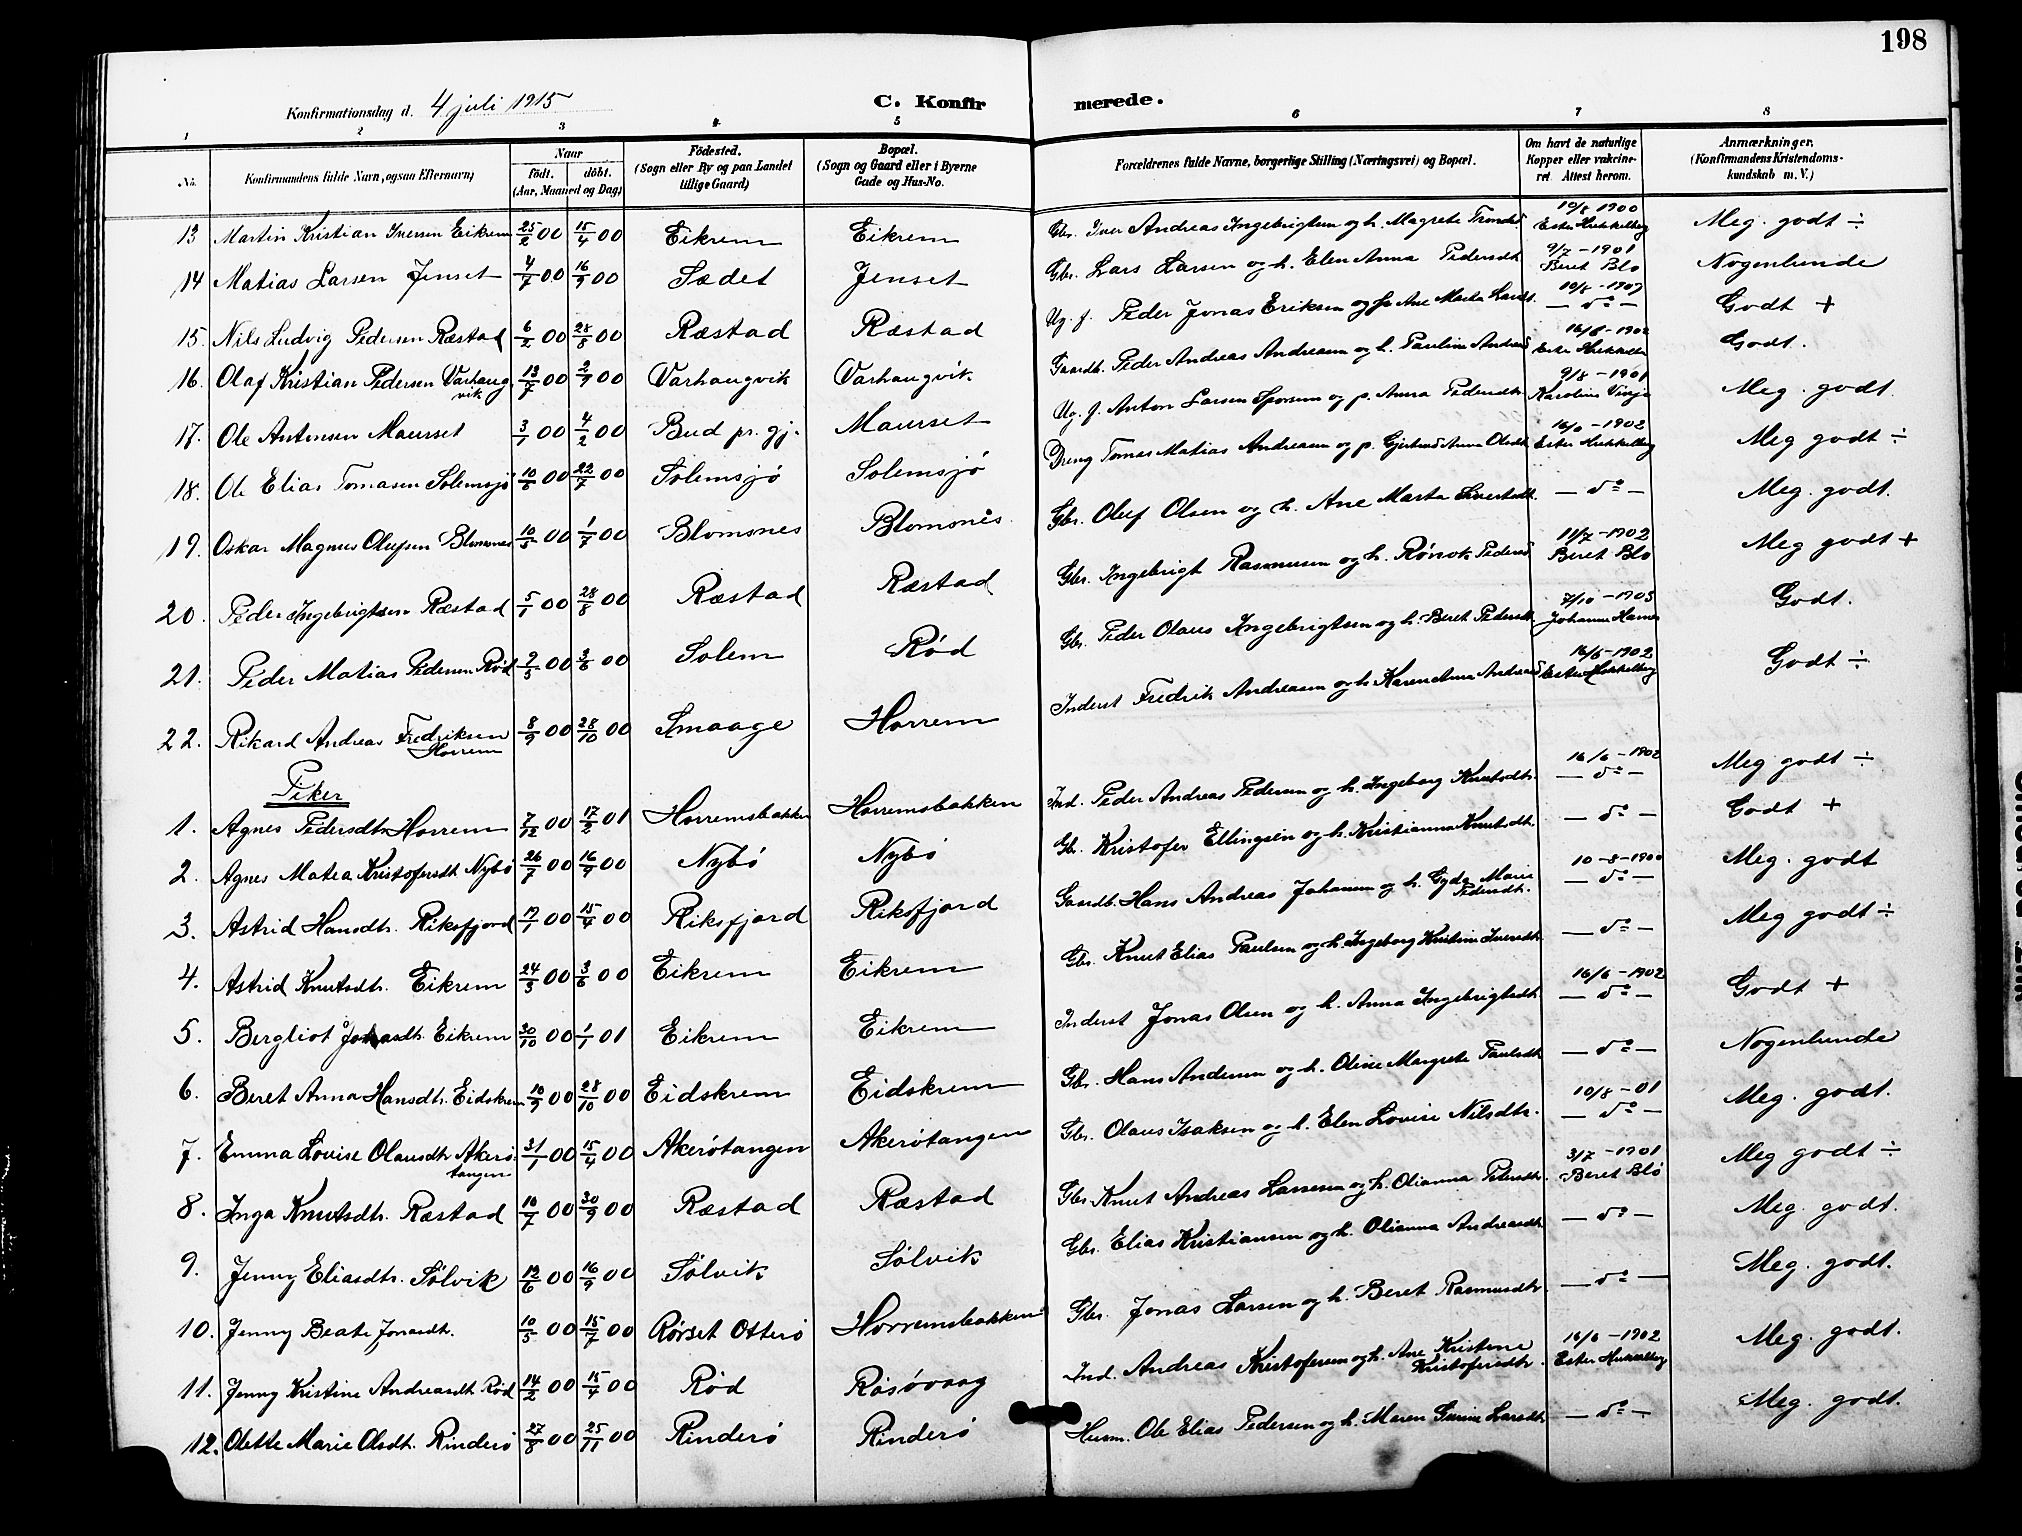 198
Konfirmationsdag d. 4 juli 1915 C. Konfirmerede.
1 2 3 4 5 6 7 8
No. Konfirmandens fulde Navn, ogsaa Efternavn) Naar födt. döbt. (Aar, Maaned og Dag) Födested. (Sogn eller By og paa Landet tillige Gaard) Bopæl. (Sogn og Gaard eller i Byerne Gade og Hus-No. Forældrenes fulde Navne, borgerlige Stilling (Næringsvei) og Bopæl. Om havt de naturlige Kopper eller vakcineret Attest herom. Anmærkninger. (Konfirmandens Kristendomskundskab m. V.)
13 Martin Kristian Iversen Eikrem 25/2 00 15/4 00 Eikrem Eikrem Gbr. Iver Andreas Ingebrigtsen og h. Magrete Trondsd 19/8 1900 Ester Hukkelberg Meg. godt ÷
14 Matias Larsen Jenset 4/7 00 16/9 00 Sædet Jenset Gbr. Lars Larsen og h. Elen Anna Pedersdt 9/7 - 1901 Beret Blø Nogenlunde
15. Nils Ludvig Pedersen Ræstad 6/2 00 28/8 00 Ræstad Ræstad Ug. f. Peder Jonas Eriksen og p. Ane Marta Larsdt. 10/8 - 1907 — do — Godt +
16. Olaf Kristian Pedersen Varhaugvik 13/7 00 2/9 00 Varhaugvik Varhaugvik Gaardb. Peder Andreas Andreasen og h. Pauline Andreasd 16/8 - 1902 Ester Hukkelb Godt.
17. Ole Antonsen Maurset 3/1 00 4/2 00 Bud pr. gj. Maurset Ug. f. Anton Larsen Sporsem og p. Anna Pedersdtr 9/8 - 1901 Karoline Vinje Meg. godt.
18. Ole Elias Tomasen Solemsjø 10/6 00 22/7 00 Solemsjø Solemsjø Dreng Tomas Matias Andreasen og p. Gjertrud Anna Olsdt 16/6 - 1902 Ester Hukkelberg Meg godt ÷
19. Oskar Magnus Olufsen Blomsnes 10/5 00 1/7 00 Blomsnes Blomsnes Gbr. Oluf Olsen og h. Ane Marta Sivertsdt. — do — Meg. godt.
20. Peder Ingebrigtsen Ræstad 5/1 00 28/8 00 Ræstad Ræstad Gbr. Ingebrigt Rasmussen og h. Rønok Pedersd 11/7 - 1902 Beret Blø Meg godt +
21. Peder Matias Pedersen Rød 9/5 00 3/6 00 Solem Rød Gbr. Peder Olaus Ingebrigtsen og h. Beret Pedersdt 7/10 - 1903 Johanne Harnes Godt.
22. Rikard Andreas Fredriksen Horrem 8/9 00 28/10 00 Smaage Horrem Inderst Fredrik Andreasen og h. Karen Anna Andreasd 16/6 - 1902 Ester Hukkelberg Godt ÷
Piker
1. Agnes Pedersdtr. Horrem 7/12 00 17/2 01 Horremsbakken Horremsbakken Ind. Peder Andreas Pedersen og h. Ingeborg Knutsdtr. 16/6 - 1902 — do — Meg godt ÷
2. Agnes Matea Kristofersdt Nybø 26/7 00 16/9 00 Nybø Nybø Gb. Kristofer Ellingsen og h. Kristianna Knutsdt. — do — Godt +
3. Astrid Hansdtr. Riksfjord 19/1 00 15/4 00 Riksfjord Riksfjord Gaardb. Hans Andreas Johansen og h. Gyda Marie Pedersdtr. 10-8-1900 — do — Meg. godt
4. Astrid Knutsdtr. Eikrem 24/3 00 3/6 00 Eikrem Eikrem Gbr. Knut Elias Paulsen og h. Ingeborg Kristine Iversdt. — do — Meg godt ÷
5. Bergliot Jonasdt. Eikrem 30/10 00 1/1 01 Eikrem Eikrem Inderst Jonas Olsen og h. Anna Ingebrigtsdt 16/6 - 1902 — do — Godt +
6. Beret Anna Hansdtr. Eidskrem 10/9 00 28/10 00 Eidskrem Eidskrem Gbr. Hans Andersen og h. Oline Margrete Paulsdt. — do — Nogenlunde
7. Emma Lovise Olausdtr Akerøtangen 31/1 00 15/4 00 Akerøtangen Akerøtangen Gbr. Olaus Isaksen og h. Elen Lovise Nilsdtr. 10/8 - 01 — do — Meg. godt.
8. Inga Knutsdtr. Ræstad 10/7 00 30/9 00 Ræstad Ræstad Gbr. Knut Andreas Larsen og h. Olianna Petersdt. 3/7 - 1901 Beret Blø Meg godt ÷
9. Jenny Eliasdtr. Sølvik 12/6 00 16/9 00 Sølvik Sølvik Gbr. Elias Kristiansen og h. Olianna Andreasdt. — do — Meg. godt.
10. Jenny Beate Jonasdt. 10/5 00 15/7 00 Rørset Otterø Horremsbakken Gbr. Jonas Larsen og h. Beret Rasmusdt. — do — Meg. godt.
11. Jenny Kristine Andreasdt Rød 14/2 00 15/4 00 Rød Røsøvaag Ind. Andreas Kristofersen og h. Ane Kristine Kristofersdtr. 16/6 - 1902 Ester Hukkelberg Meg. godt.
12. Olette Marie Olsdt. Rinderø 27/8 00 25/11 00 Rinderø Rinderø Husm. Ole Elias Pedersen og h. Maren Gurine Larsdt. — do — Meg. godt.